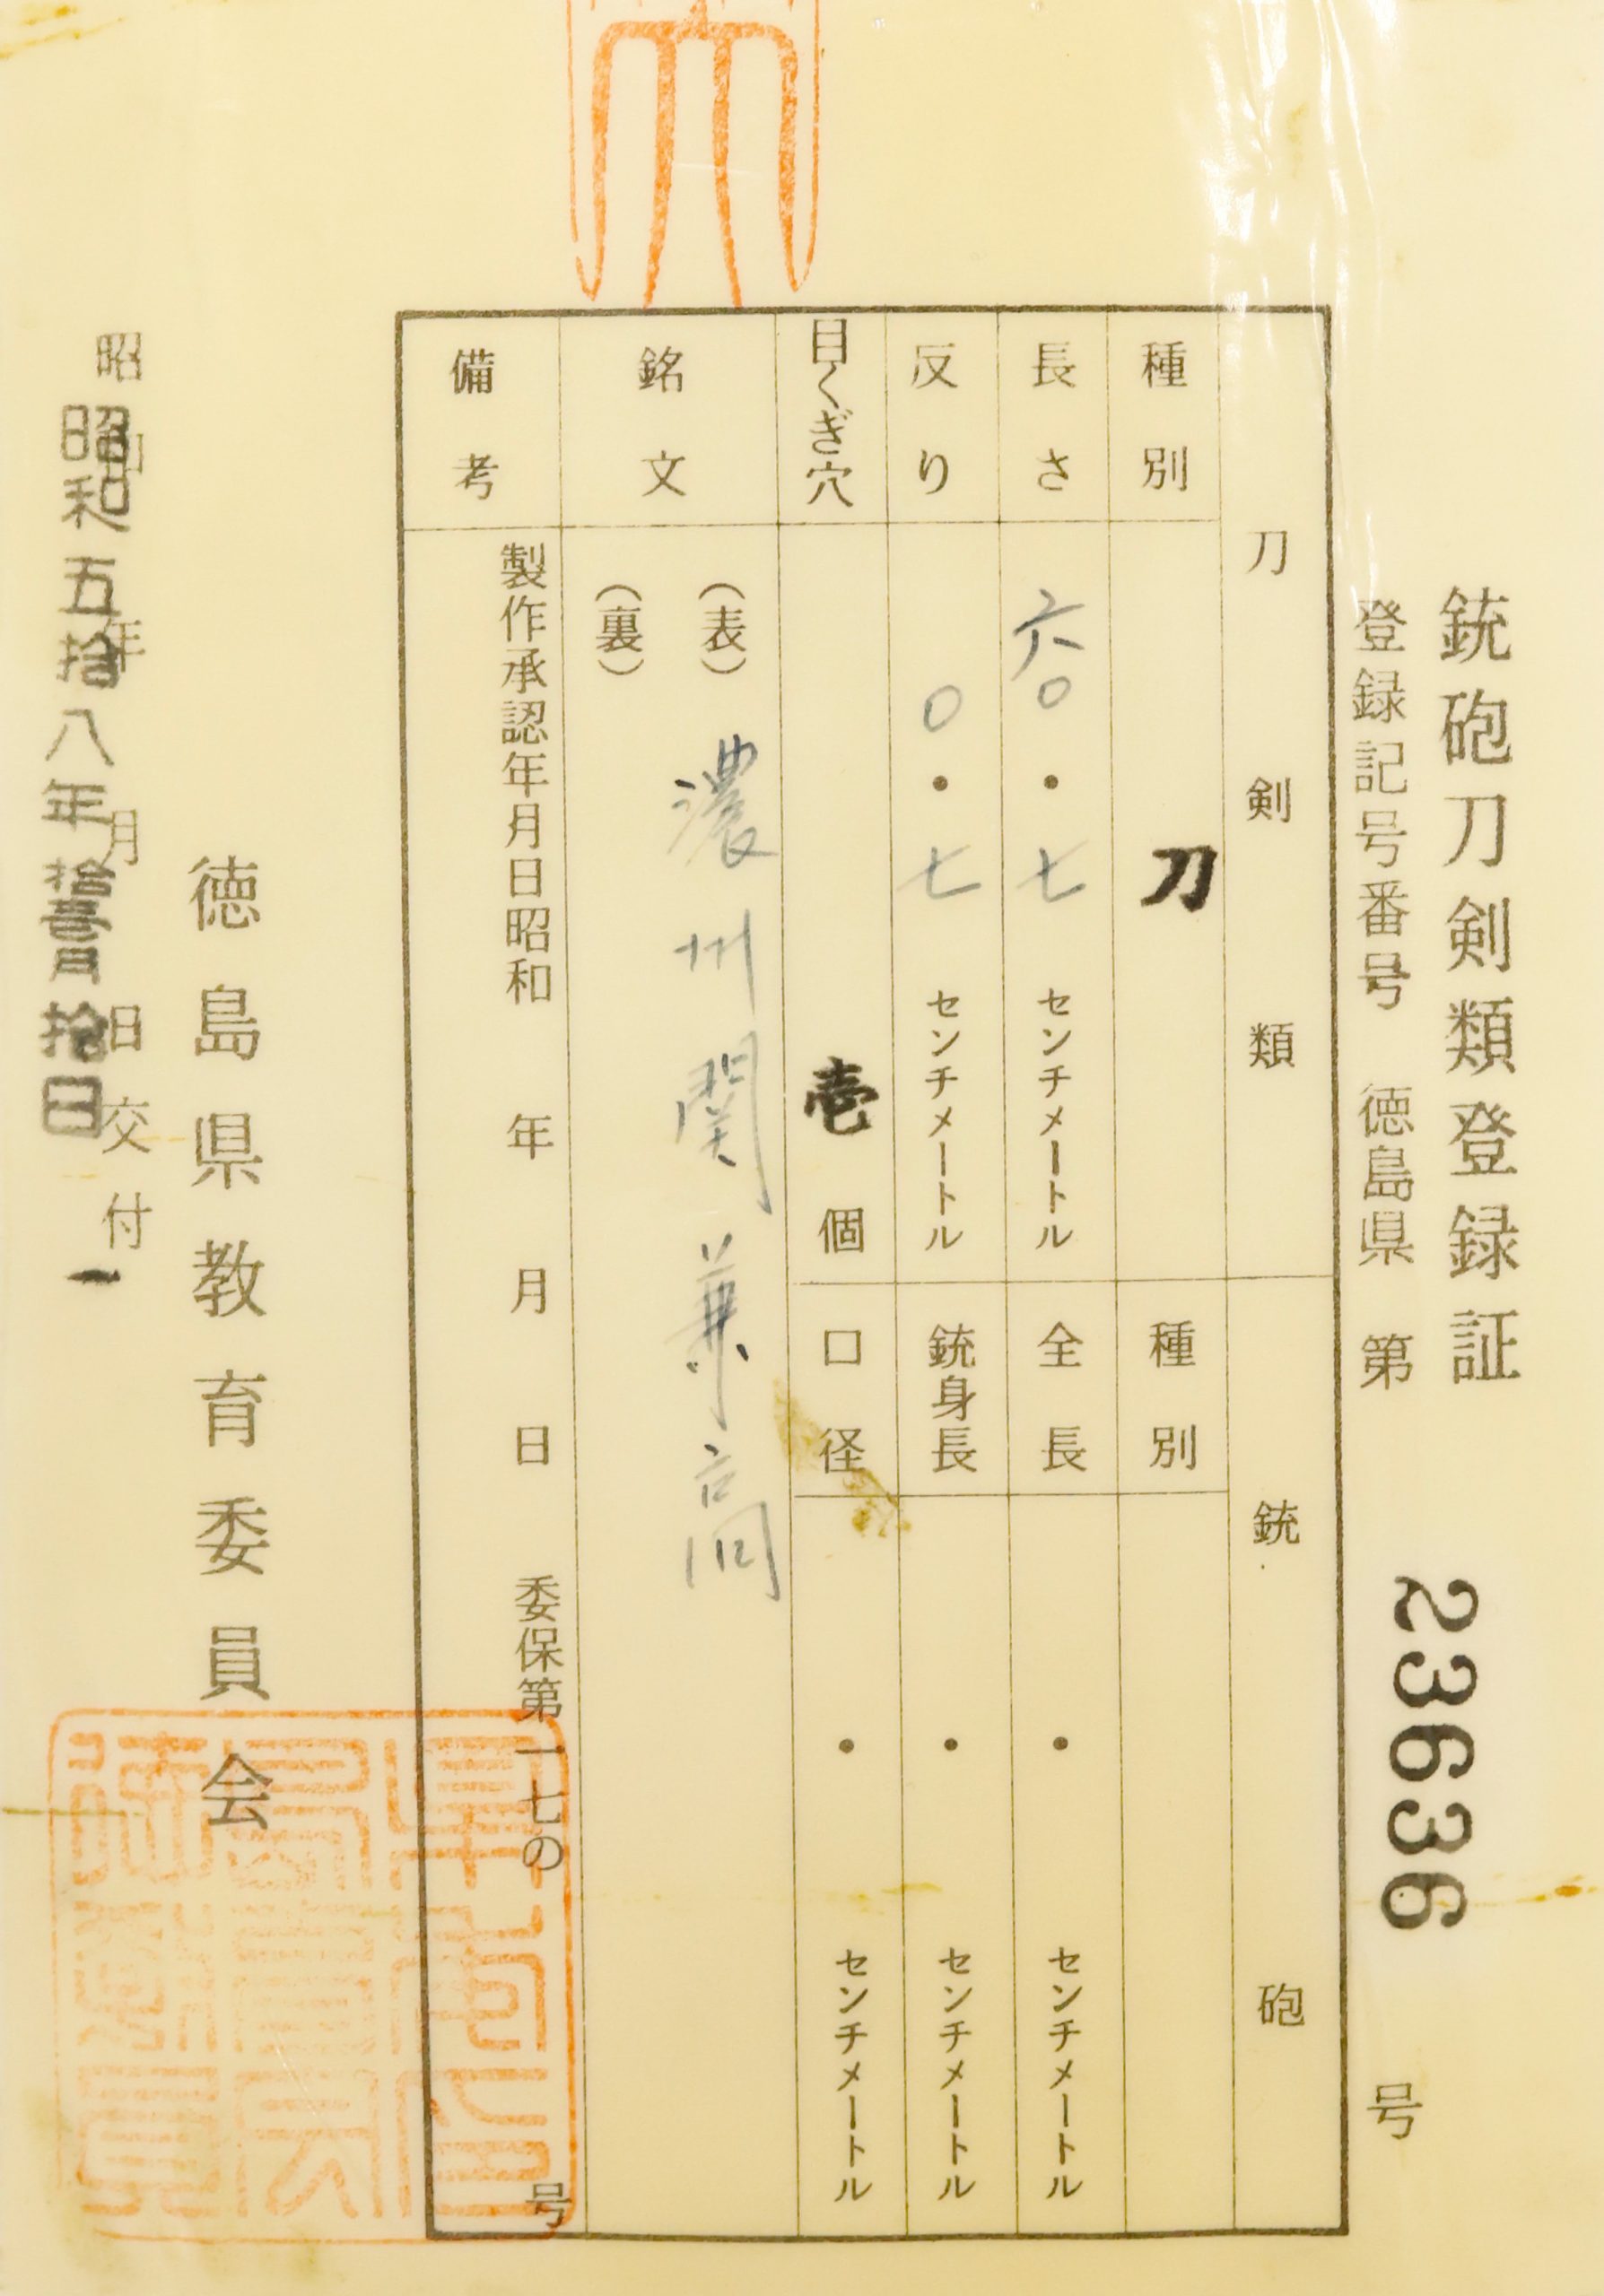 銃砲刀剣類登録証
登録記号番号 徳島県 第 23636 号
刀剣類
種別 刀
長さ 六〇・七 センチメートル
反り 〇・七 センチメートル
目くぎ穴 壱個
銘文 (表) 濃州関兼高
(裏)
銃砲
種別
全長 ・ センチメートル
銃身長 ・ センチメートル
口径 ・ センチメートル
備考 製作承認年月日昭和 年 月 日 委保第一七の 号
徳島県教育委員会
昭和 年 月 日交付
昭和五拾八年拾壹月拾日